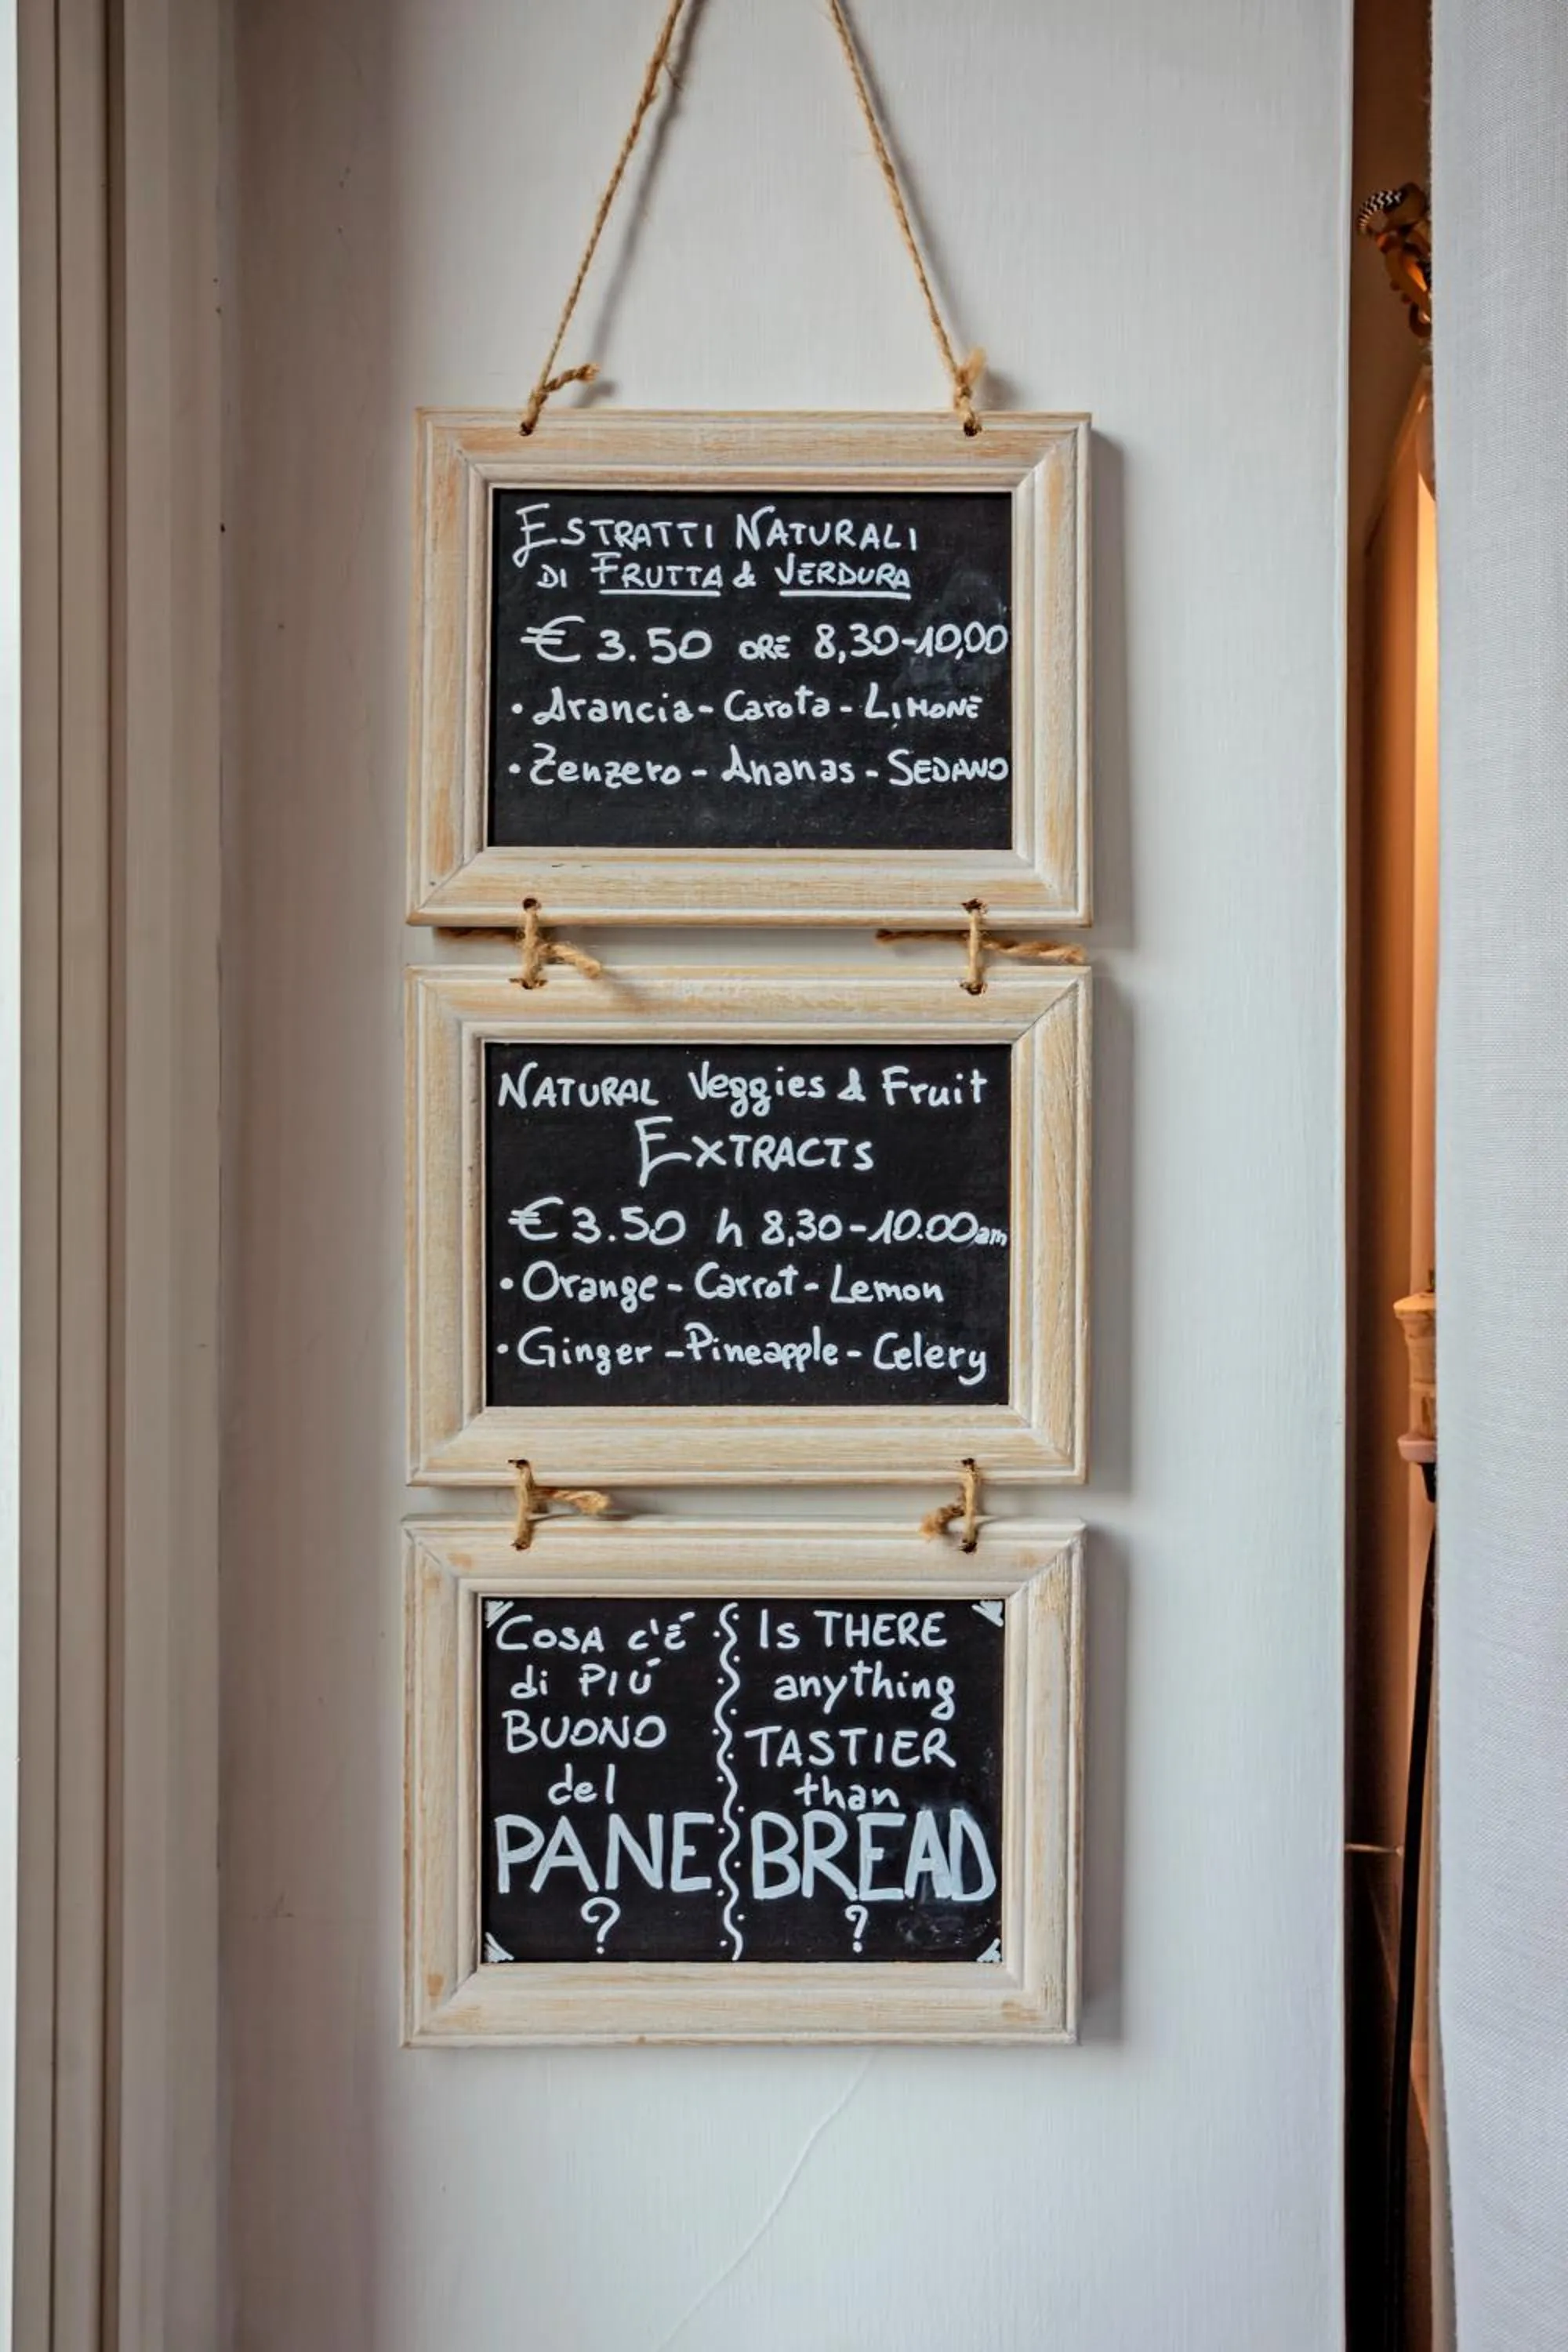 ESTRATTI NATURALI
DI FRUTTA & VERDURA
€ 3.50 ORE 8,30-10,00
• Arancia - Carota - LIMONE
• Zenzero - Ananas - SEDANO
NATURAL Veggies & Fruit
EXTRACTS
€ 3.50 h 8,30-10.00am
• Orange - Carrot - Lemon
• Ginger - Pineapple - Celery
COSA c'É
di PIÚ
BUONO
del
PANE
?
Is THERE
anything
TASTIER
than
BREAD
?